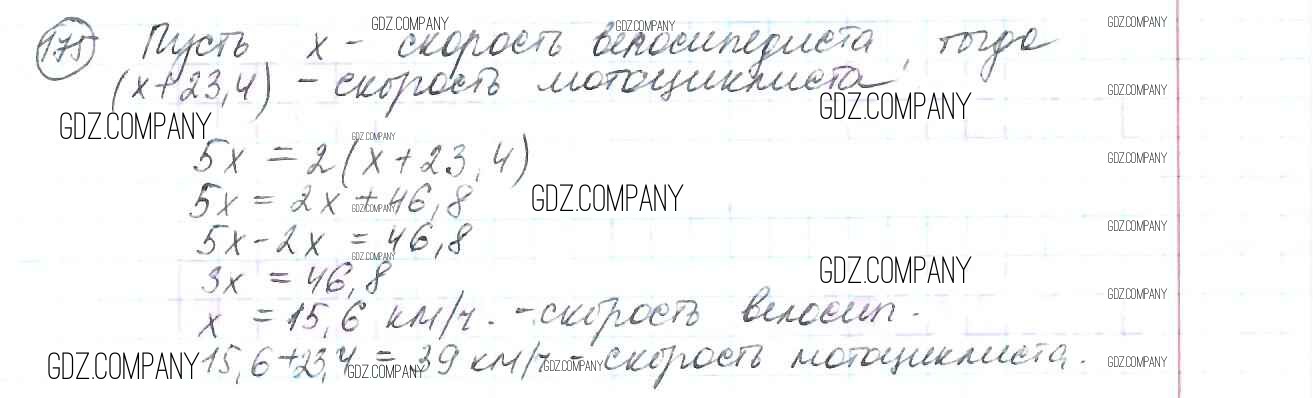 GDZ.COMPANY GDZ.COMPANY GDZ.COMPANY
175 Пусть x - скорость велосипедиста, тогда
(x+23,4) - скорость мотоциклиста
GDZ.COMPANY
GDZ.COMPANY GDZ.COMPANY
GDZ.COMPANY
5x = 2(x+23,4)
GDZ.COMPANY
5x = 2x + 46,8
GDZ.COMPANY GDZ.COMPANY
5x - 2x = 46,8
GDZ.COMPANY
GDZ.COMPANY
3x = 46,8
GDZ.COMPANY
GDZ.COMPANY
x = 15,6 км/ч. - скорость велосип.
15,6+23,4 = 39 км/ч - скорость мотоциклиста.
GDZ.COMPANY GDZ.COMPANY GDZ.COMPANY GDZ.COMPANY